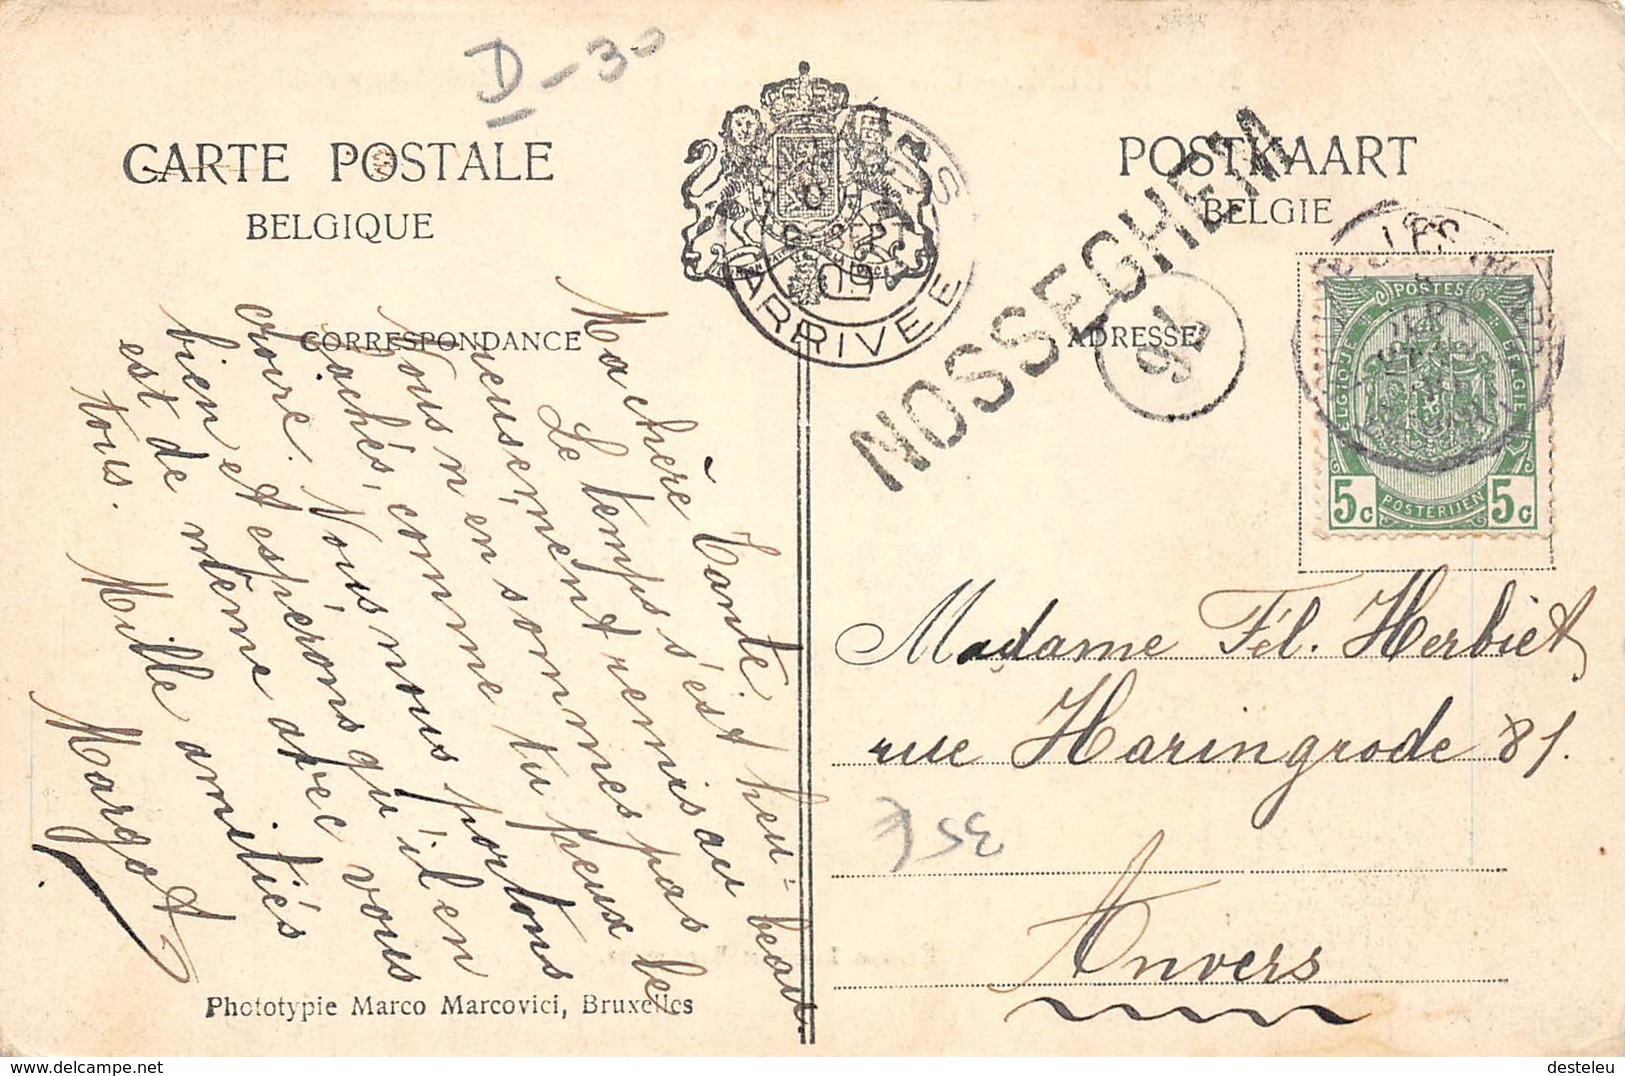 D-30
CARTE POSTALE
BELGIQUE
CORRESPONDANCE
POSTKAART
BELGIE
ADRESSE
ARRIVÉE
09
NOSSEGHEM
POSTES
BELGIE
POSTERIJEN
5c 5c
Ma chère Tante.
Le temps s'est heu-
reusement remis au beau.
Nous n'en sommes pas
fâchés, comme tu peux le
croire. Nous nous portons
bien et espérons qu'il en
est de même avec vous
tous. Mille amitiés
Margot
Madame Fél. Herbiet
rue Haringrode 81.
Anvers
Phototypie Marco Marcovici, Bruxelles
https://www.delcampe.net
desteleu